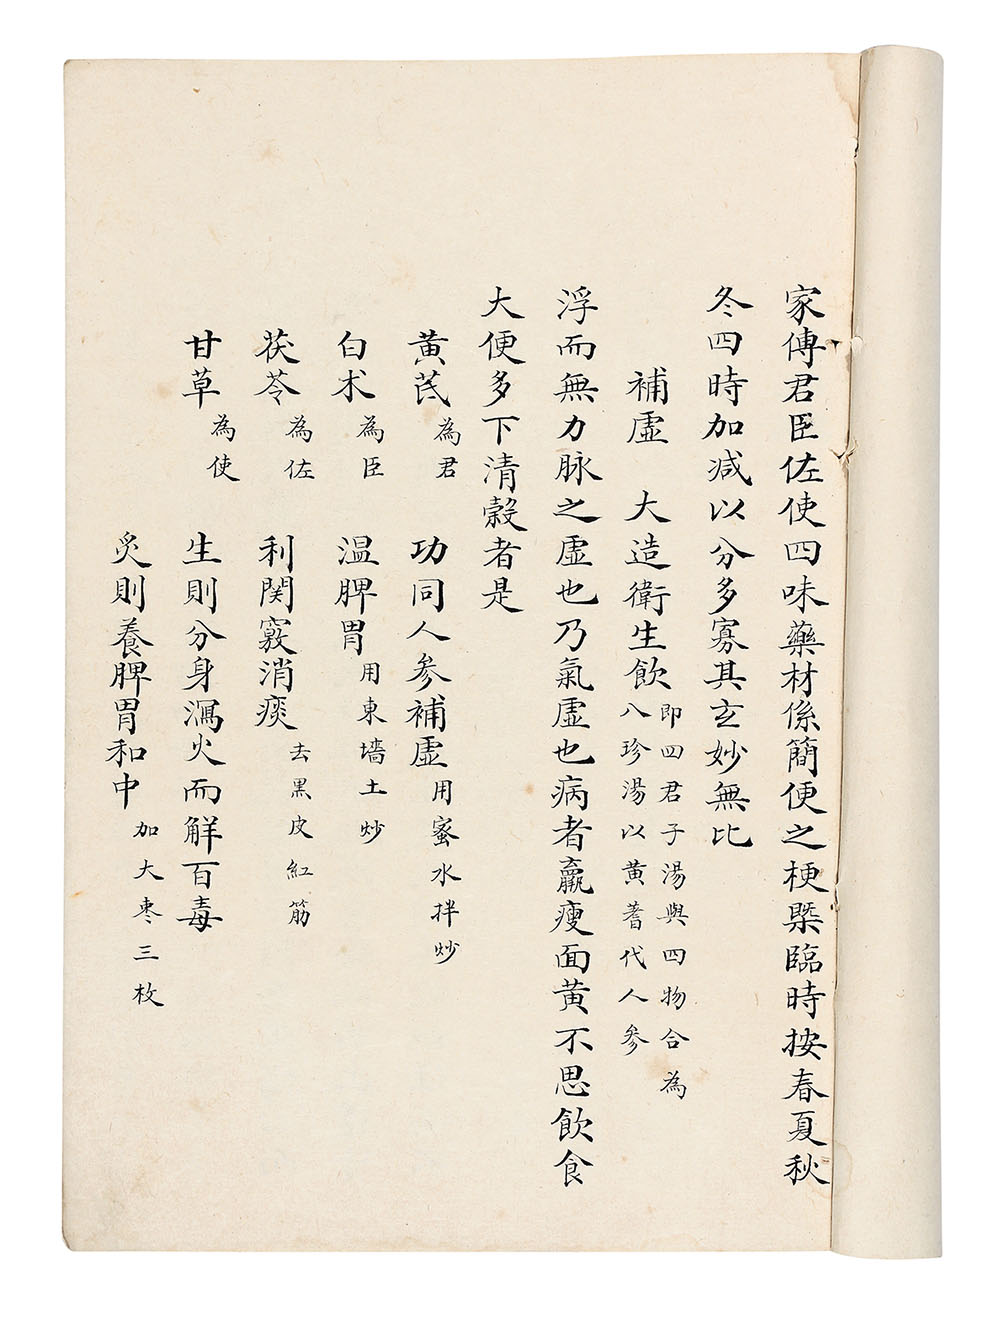 家傳君臣佐使四味藥材係簡便之梗槩臨時按春夏秋
冬四時加減以分多寡其玄妙無比
補虛 大造衛生飲 即四君子湯與四物合為
八珍湯以黃蓍代人參
浮而無力脉之虛也乃氣虛也病者羸瘦面黃不思飲食
大便多下清穀者是
黃芪 為君 功同人參補虛 用蜜水拌炒
白朮 為臣 温脾胃 用東墻土炒
茯苓 為佐 利関竅消痰 去黑皮紅筋
甘草 為使 生則分身瀉火而解百毒
炙則養脾胃和中 加大枣三枚